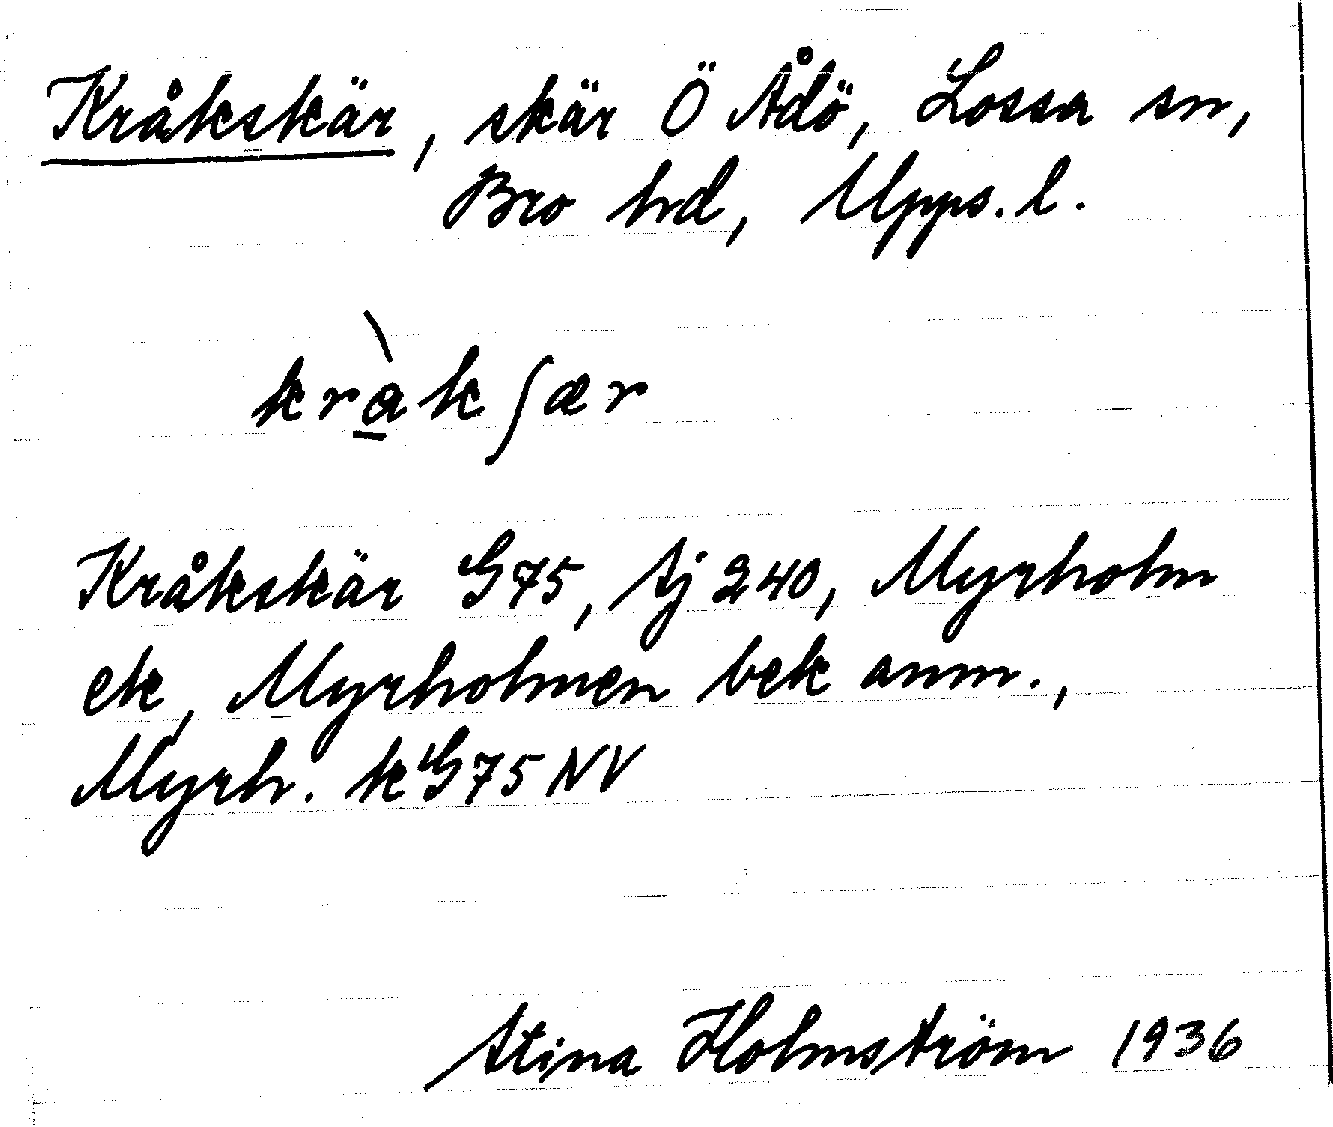 Kråkskär, skär Ö Ådö, Lossa sn,
Bro hd, Upps. l.
kràkʃær
Kråkskär G75, Sj 240, Myrholm
ek, Myrholmen bek anm.,
Myrh. k G75 NV
Stina Holmström 1936